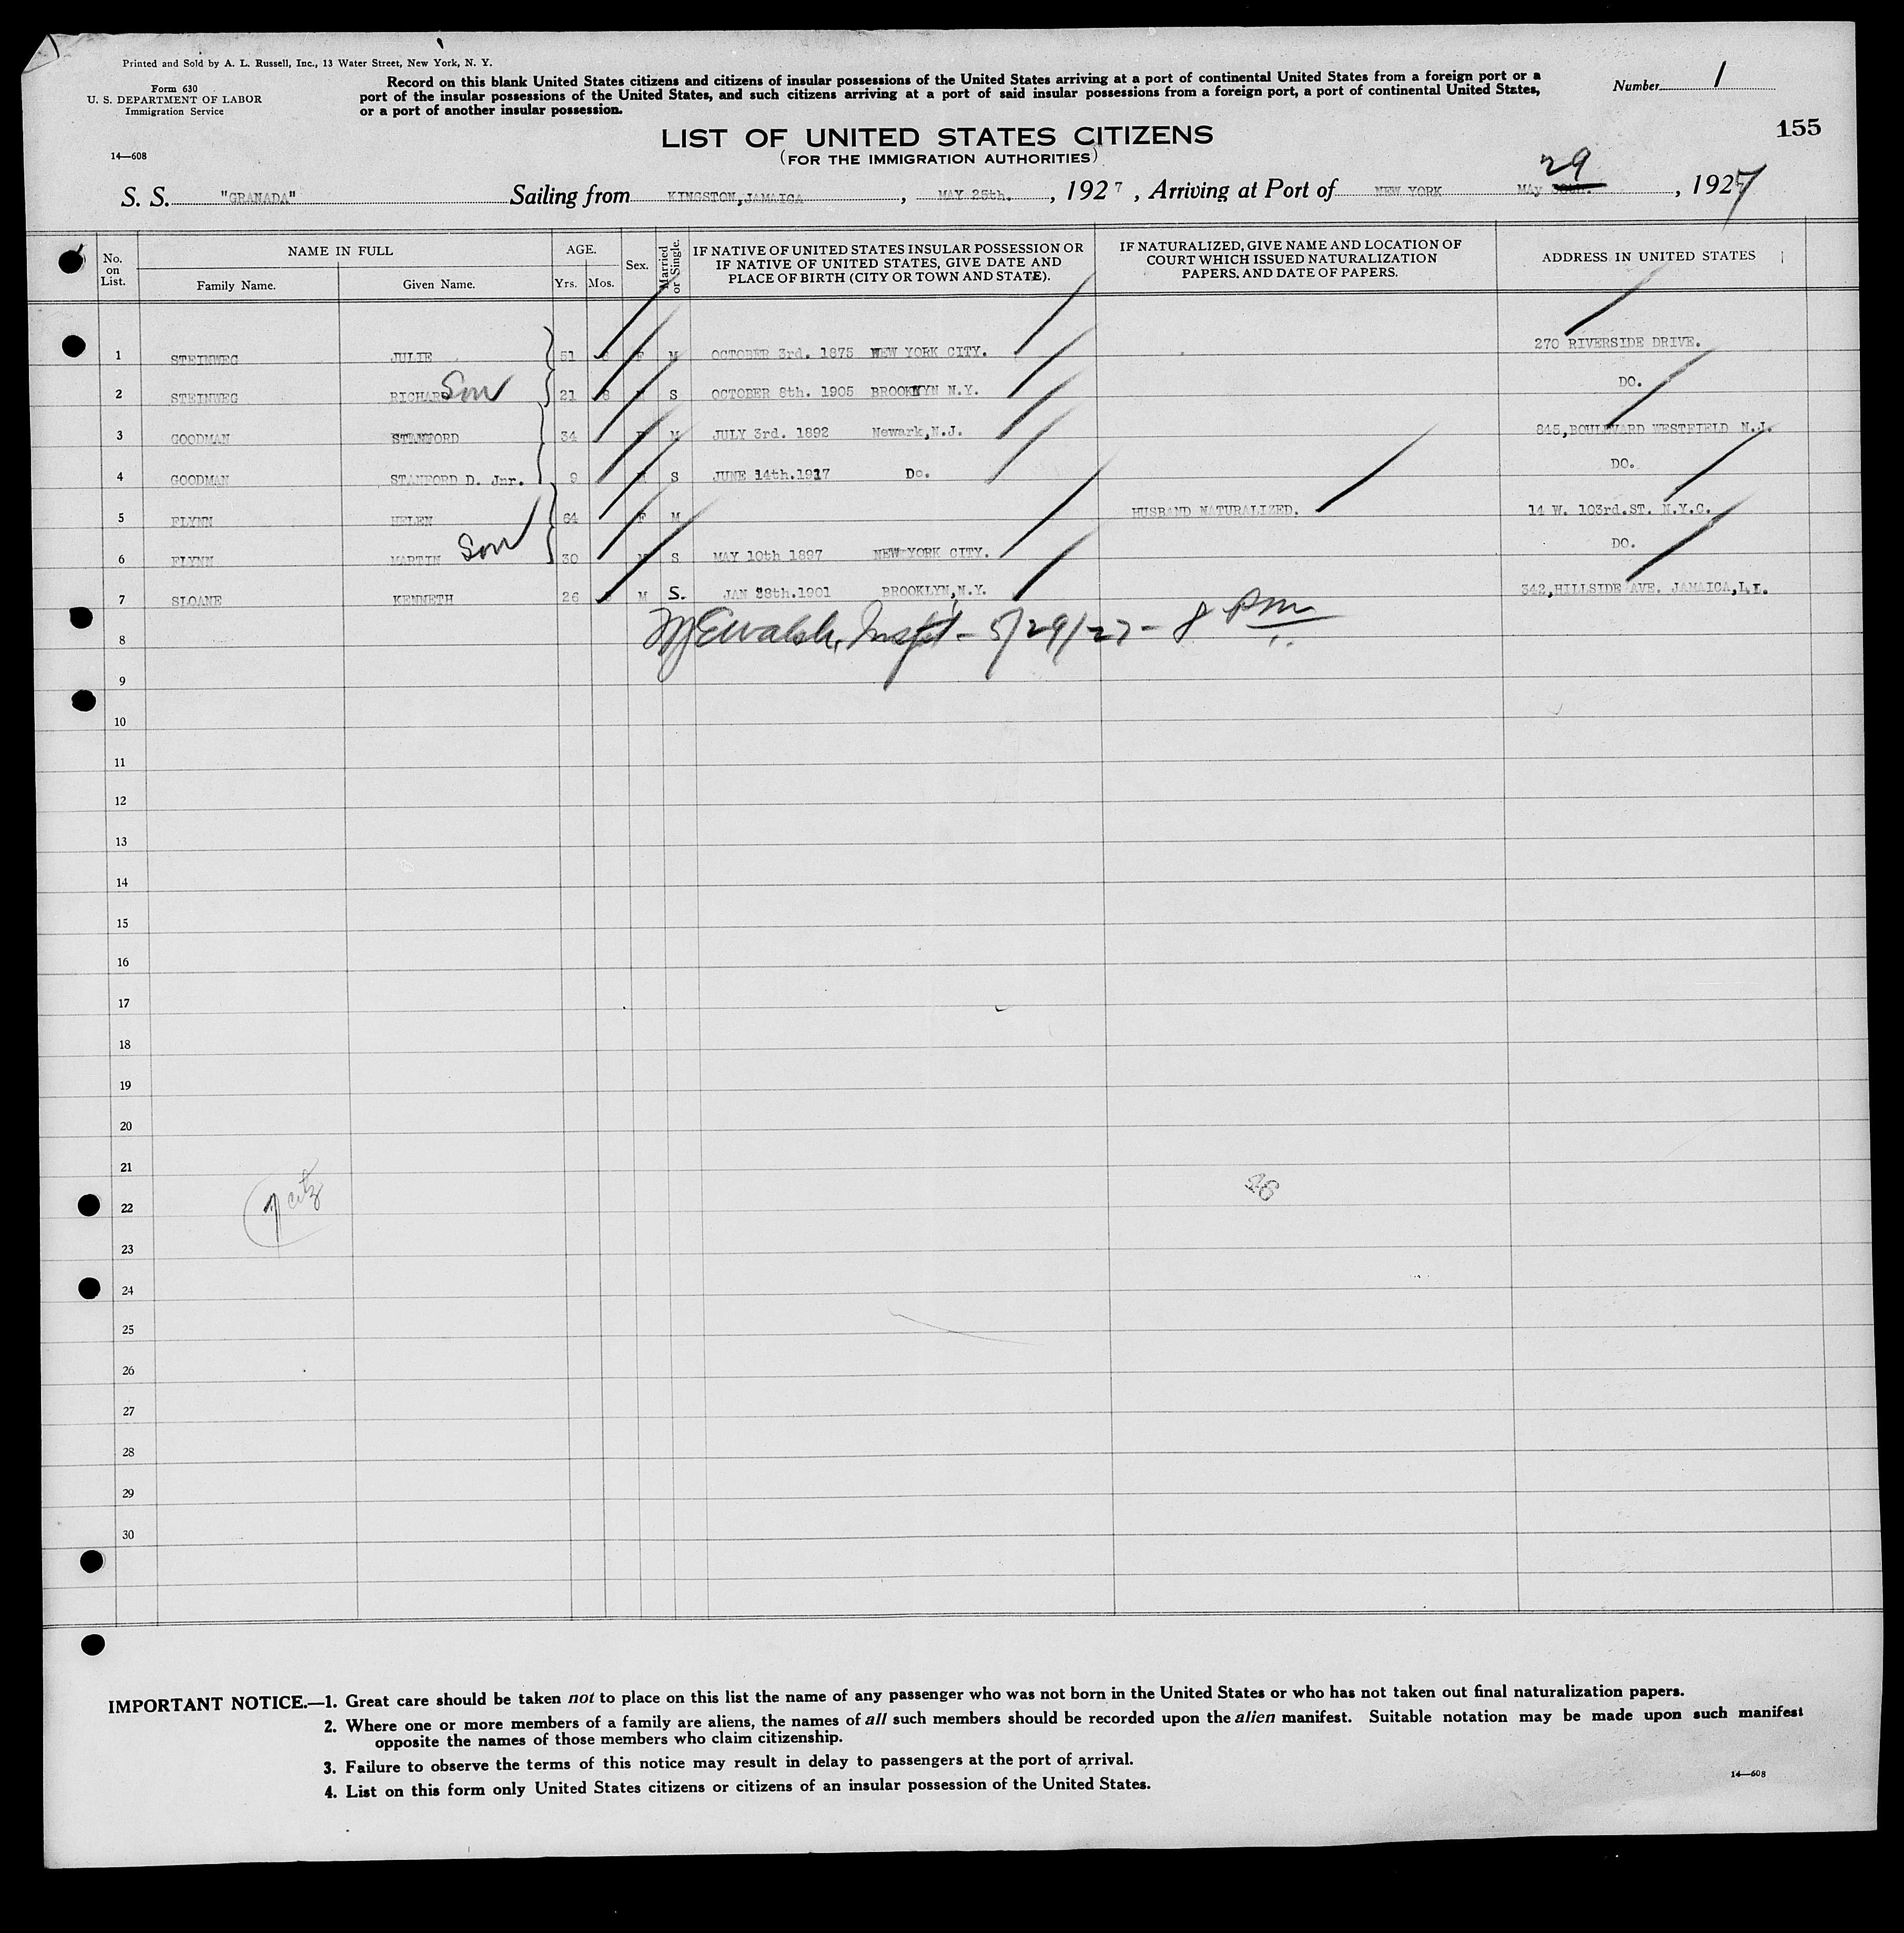 Printed and Sold by A. L. Russell, Inc., 13 Water Street, New York, N. Y.
Form 630
U. S. DEPARTMENT OF LABOR
Immigration Service
14—608
Record on this blank United States citizens and citizens of insular possessions of the United States arriving at a port of continental United States from a foreign port or a
port of the insular possessions of the United States, and such citizens arriving at a port of said insular possessions from a foreign port, a port of continental United States,
or a port of another insular possession.
Number 1
155
LIST OF UNITED STATES CITIZENS
(FOR THE IMMIGRATION AUTHORITIES)
29
S. S. "GRANADA" Sailing from KINGSTON,JAMAICA, MAY 25th., 1927, Arriving at Port of NEW YORK MAy, 1927
No. on List. NAME IN FULL Family Name. Given Name. AGE. Yrs. Mos. Sex. Married or Single. IF NATIVE OF UNITED STATES INSULAR POSSESSION OR IF NATIVE OF UNITED STATES, GIVE DATE AND PLACE OF BIRTH (CITY OR TOWN AND STATE). IF NATURALIZED, GIVE NAME AND LOCATION OF COURT WHICH ISSUED NATURALIZATION PAPERS, AND DATE OF PAPERS. ADDRESS IN UNITED STATES
1 STEINWEG JULIE 51 F M OCTOBER 3rd. 1875 NEW YORK CITY. 270 RIVERSIDE DRIVE.
2 STEINWEG RICHARD Son 21 8 M S OCTOBER 8th. 1905 BROOKLYN N.Y. DO.
3 GOODMAN STANFORD 34 M JULY 3rd. 1892 Newark,N.J. 845,BOULEVARD WESTFIELD N.J.
4 GOODMAN STANFORD D. Jnr. 9 M S JUNE 14th.1917 Do. DO.
5 FLYNN HELEN 64 F M HUSBAND NATURALIZED. 14 W. 103rd.ST. N.Y.C.
6 FLYNN MARTIN Son 30 M S MAY 10th 1897 NEW YORK CITY. DO.
7 SLOANE KENNETH 26 M S. JAN 28th.1901 BROOKLYN,N.Y. 342,HILLSIDE AVE. JAMAICA,L.I.
8 Walsh, Inspt - 5/29/27 - 8 Pm
9
10
11
12
13
14
15
16
17
18
19
20
21
22 7 citz 46
23
24
25
26
27
28
29
30
IMPORTANT NOTICE.—1. Great care should be taken not to place on this list the name of any passenger who was not born in the United States or who has not taken out final naturalization papers.
2. Where one or more members of a family are aliens, the names of all such members should be recorded upon the alien manifest. Suitable notation may be made upon such manifest
opposite the names of those members who claim citizenship.
3. Failure to observe the terms of this notice may result in delay to passengers at the port of arrival.
4. List on this form only United States citizens or citizens of an insular possession of the United States.
14—608